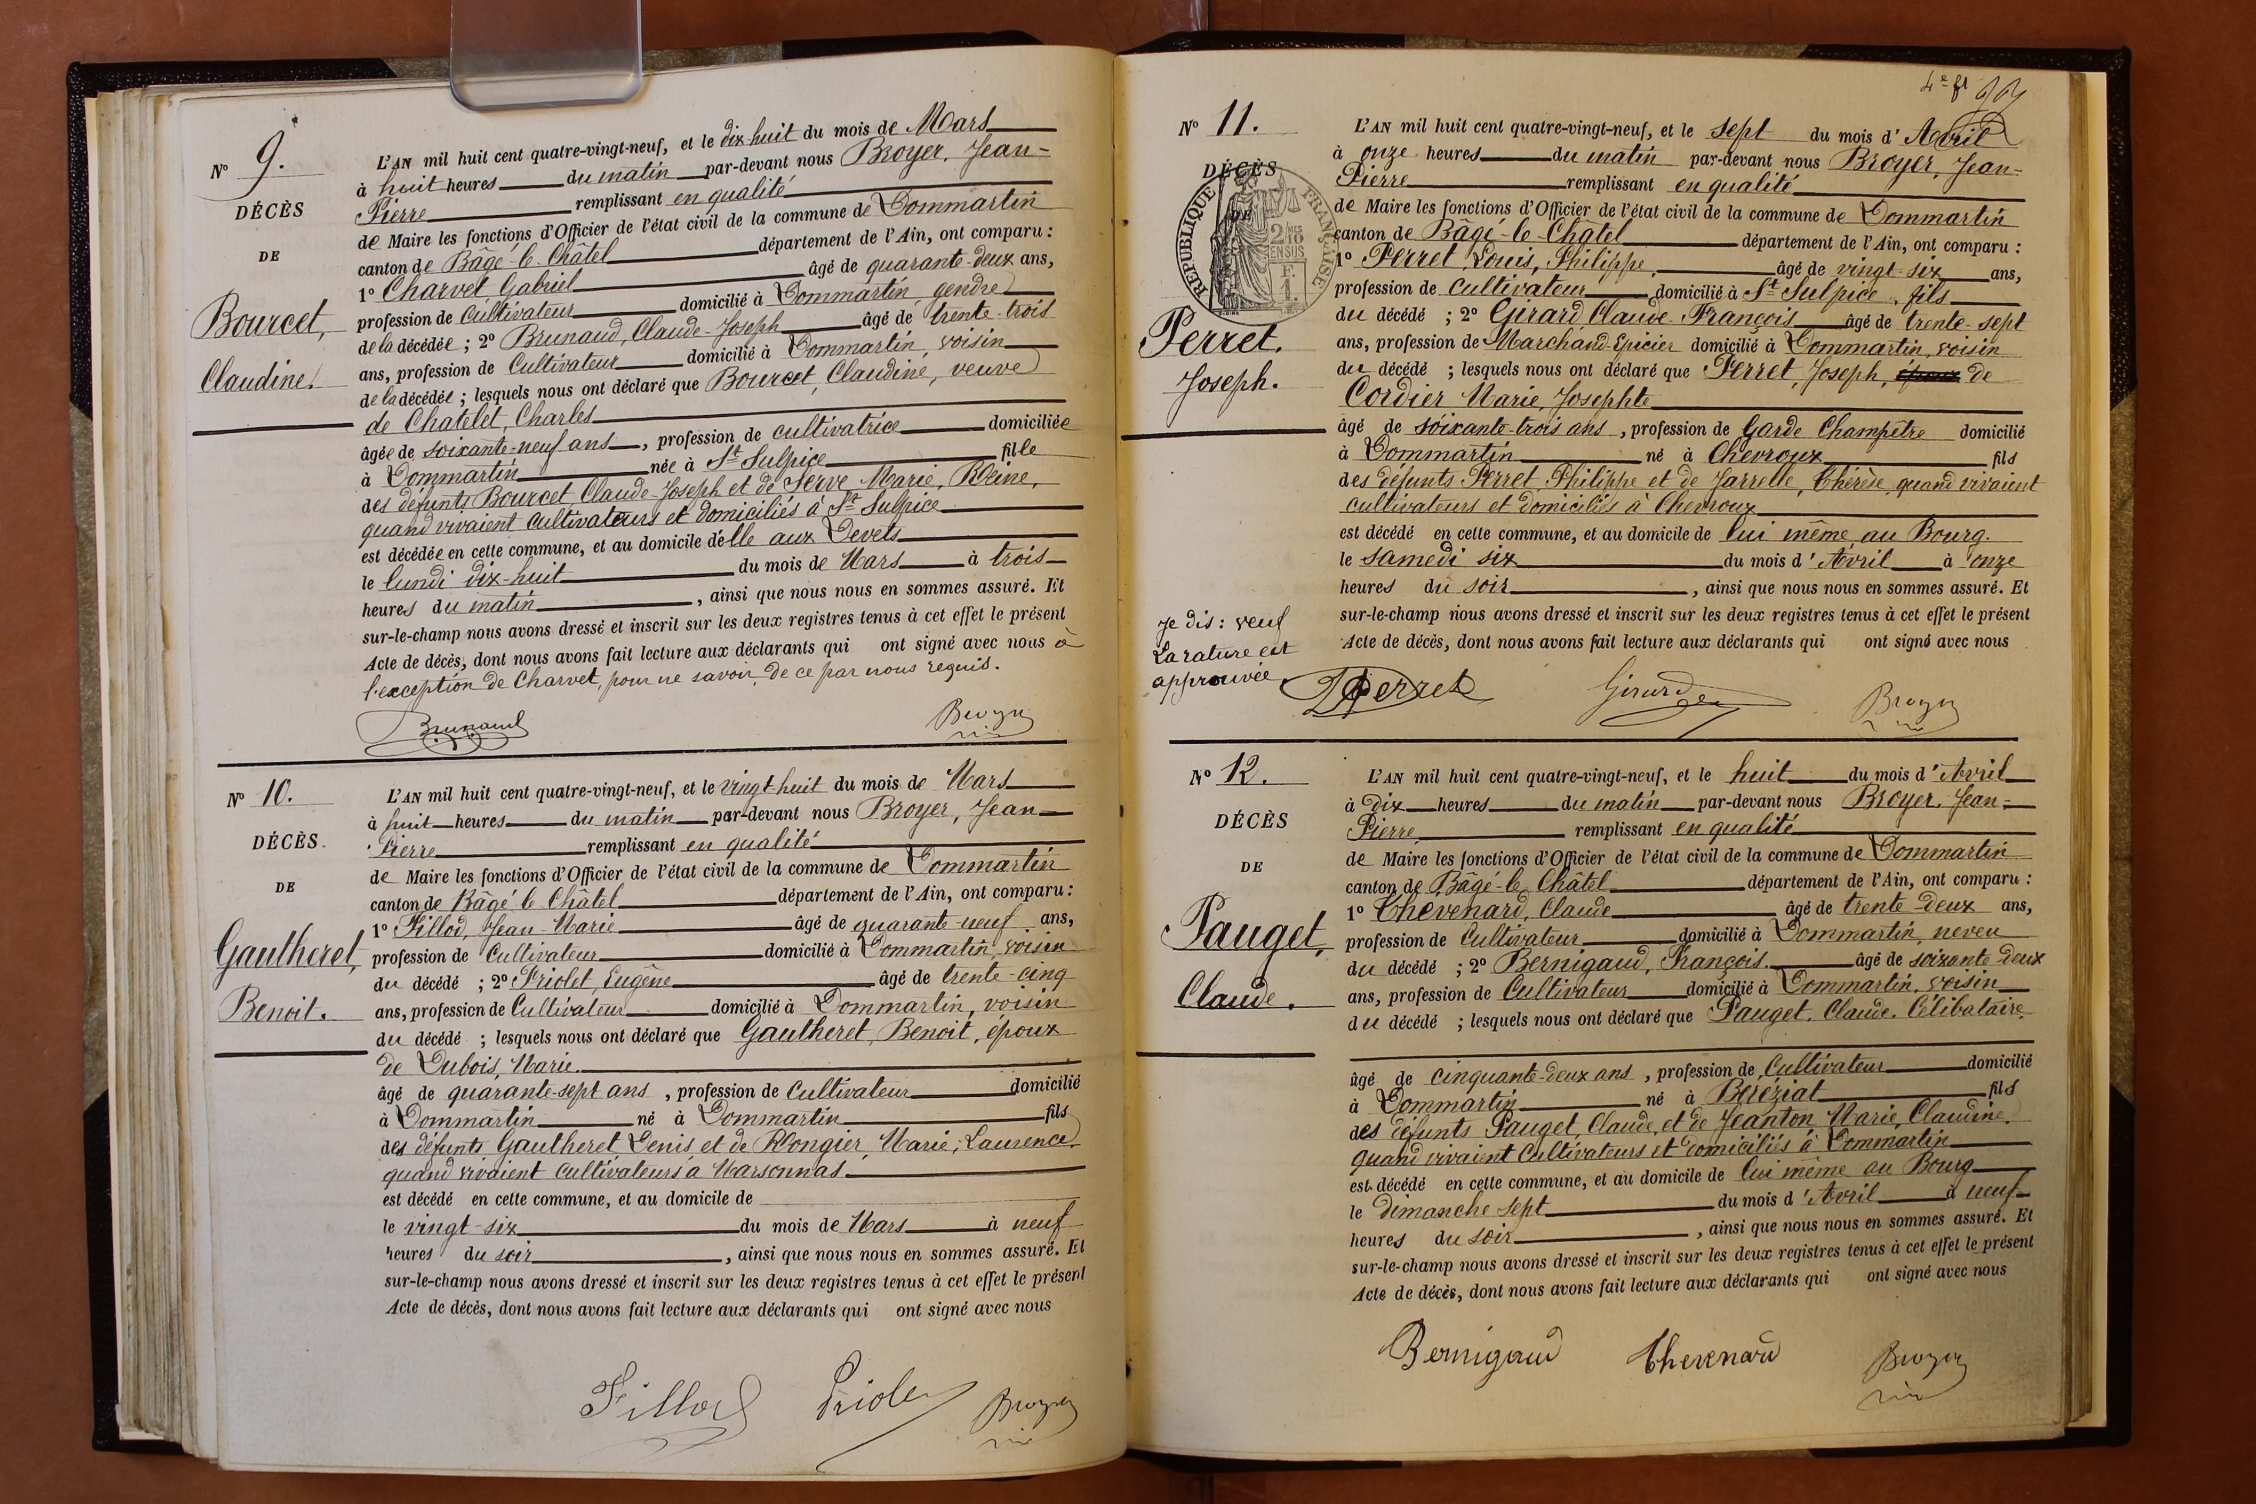 N° 9.
DÉCÈS
DE
Bourcet,
Claudine.
L'AN mil huit cent quatre-vingt-neuf, et le dix huit du mois de Mars
à huit heures du matin par-devant nous Broyer, Jean-
Pierre remplissant en qualité
de Maire les fonctions d'Officier de l'état civil de la commune de Dommartin
canton de Bâgé-le-Châtel département de l'Ain, ont comparu :
1° Charvet Gabriel âgé de quarante-deux ans,
profession de cultivateur domicilié à Dommartin gendre
de la décédée ; 2° Brunaud, Claude-Joseph âgé de trente-trois
ans, profession de Cultivateur domicilié à Dommartin, voisin
de la décédée ; lesquels nous ont déclaré que Bourcet, Claudine, veuve
de Chatelet, Charles
âgée de soixante-neuf ans, profession de cultivatrice domiciliée
à Dommartin née à St Sulpice fille
des défunts Bourcet Claude-Joseph et de Serve Marie, Reine,
quand vivaient cultivateurs et domiciliés à St Sulpice
est décédée en cette commune, et au domicile d'elle aux Devets
le lundi dix-huit du mois de Mars à trois
heures du matin, ainsi que nous nous en sommes assuré. Et
sur-le-champ nous avons dressé et inscrit sur les deux registres tenus à cet effet le présent
Acte de décès, dont nous avons fait lecture aux déclarants qui ont signé avec nous à
l'exception de Charvet, pour ne savoir, de ce par nous requis.
Brunaud Broyer
N° 10.
DÉCÈS.
DE
Gautheret,
Benoit.
L'AN mil huit cent quatre-vingt-neuf, et le vingt-huit du mois de Mars
à huit heures du matin par-devant nous Broyer, Jean
Pierre remplissant en qualité
de Maire les fonctions d'Officier de l'état civil de la commune de Dommartin
canton de Bâgé-le Châtel département de l'Ain, ont comparu :
1° Fillod, Jean-Marie âgé de quarante-neuf ans,
profession de Cultivateur domicilié à Dommartin, voisin
du décédé ; 2° Priolet, Eugène âgé de trente-cinq
ans, profession de Cultivateur domicilié à Dommartin, voisin
du décédé ; lesquels nous ont déclaré que Gautheret, Benoit, époux
de Dubois, Marie.
âgé de quarante-sept ans, profession de Cultivateur domicilié
à Dommartin né à Dommartin fils
des défunts Gautheret Denis et de Rongier, Marie, Laurence
quand vivaient cultivateurs à Marsonnas
est décédé en cette commune, et au domicile de
le vingt-six du mois de Mars à neuf
heures du soir, ainsi que nous nous en sommes assuré. Et
sur-le-champ nous avons dressé et inscrit sur les deux registres tenus à cet effet le présent
Acte de décès, dont nous avons fait lecture aux déclarants qui ont signé avec nous
Fillod Priolet Broyer
4e ft
N° 11.
DÉCÈS
DE
REPUBLIQUE FRANÇAISE
Perret.
Joseph.
L'AN mil huit cent quatre-vingt-neuf, et le sept du mois d'Avril
à onze heures du matin par-devant nous Broyer, Jean-
Pierre remplissant en qualité
de Maire les fonctions d'Officier de l'état civil de la commune de Dommartin
canton de Bâgé-le-Châtel département de l'Ain, ont comparu :
1° Perret, Louis, Philippe, âgé de vingt-six ans,
profession de cultivateur domicilié à St Sulpice, fils
du décédé ; 2° Girard, Claude-François âgé de trente-sept
ans, profession de Marchand-Epicier domicilié à Dommartin, voisin
du décédé ; lesquels nous ont déclaré que Perret, Joseph, époux de
Cordier Marie, Josephte
âgé de soixante-trois ans, profession de Garde Champêtre domicilié
à Dommartin né à Chevroux fils
des défunts Perret Philippe et de Jarrelle, Thérèse, quand vivaient
cultivateurs et domiciliés à Chevroux
est décédé en cette commune, et au domicile de lui même au Bourg.
le samedi six du mois d'Avril à onze
heures du soir, ainsi que nous nous en sommes assuré. Et
sur-le-champ nous avons dressé et inscrit sur les deux registres tenus à cet effet le présent
Acte de décès, dont nous avons fait lecture aux déclarants qui ont signé avec nous
Je dis : veuf
La rature est
approuvée.
Perret Girard Broyer
N° 12.
DÉCÈS
DE
Pauget,
Claude.
L'AN mil huit cent quatre-vingt-neuf, et le huit du mois d'Avril
à dix heures du matin par-devant nous Broyer, Jean-
Pierre remplissant en qualité
de Maire les fonctions d'Officier de l'état civil de la commune de Dommartin
canton de Bâgé-le Châtel département de l'Ain, ont comparu :
1° Thévenard, Claude âgé de trente-deux ans,
profession de Cultivateur domicilié à Dommartin, neveu
du décédé ; 2° Bernigaud, François. âgé de soixante-deux
ans, profession de Cultivateur domicilié à Dommartin, voisin
du décédé ; lesquels nous ont déclaré que Pauget, Claude. Célibataire.
âgé de cinquante-deux ans, profession de Cultivateur domicilié
à Dommartin né à Béréziat fils
des défunts Pauget, Claude, et de Jeanton Marie, Claudine.
quand vivaient Cultivateurs et domiciliés à Dommartin
est décédé en cette commune, et au domicile de lui même au Bourg
le dimanche sept du mois d'Avril à neuf
heures du soir, ainsi que nous nous en sommes assuré. Et
sur-le-champ nous avons dressé et inscrit sur les deux registres tenus à cet effet le présent
Acte de décès, dont nous avons fait lecture aux déclarants qui ont signé avec nous
Bernigaud Thevenard Broyer